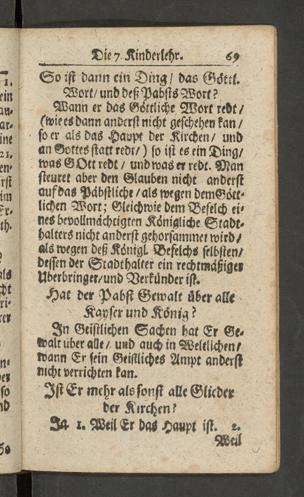 Die 7. Kinderlehr. 69
So ist dann ein Ding / das Göttl.
Wort / und deß Pabsts Wort?
Wann er das Göttliche Wort redt /
(wie es dann anderst nicht geschehen kan /
so er als das Haupt der Kirchen / und
an Gottes statt redt /) so ist es ein Ding /
was GOtt redt / und was er redt. Man
steuret aber den Glauben nicht anderst
auf das Päbstliche / als wegen dem Gött-
lichen Wort; Gleichwie dem Befelch ei-
nes bevollmächtigten Königliche Stadt-
halters nicht anderst gehorsammet wird /
als wegen deß Königl. Befelchs selbsten /
dessen der Stadthalter ein rechtmäßiger
Uberbringer / und Verkünder ist.
Hat der Pabst Gewalt über alle
Kayser und König?
In Geistlichen Sachen hat Er Ge-
walt über alle / und auch in Weltlichen /
wann Er sein Geistliches Ampt anderst
nicht verrichten kan.
Ist Er mehr als sonst alle Glieder
der Kirchen?
Ja 1. Weil Er das Haupt ist. 2.
Weil